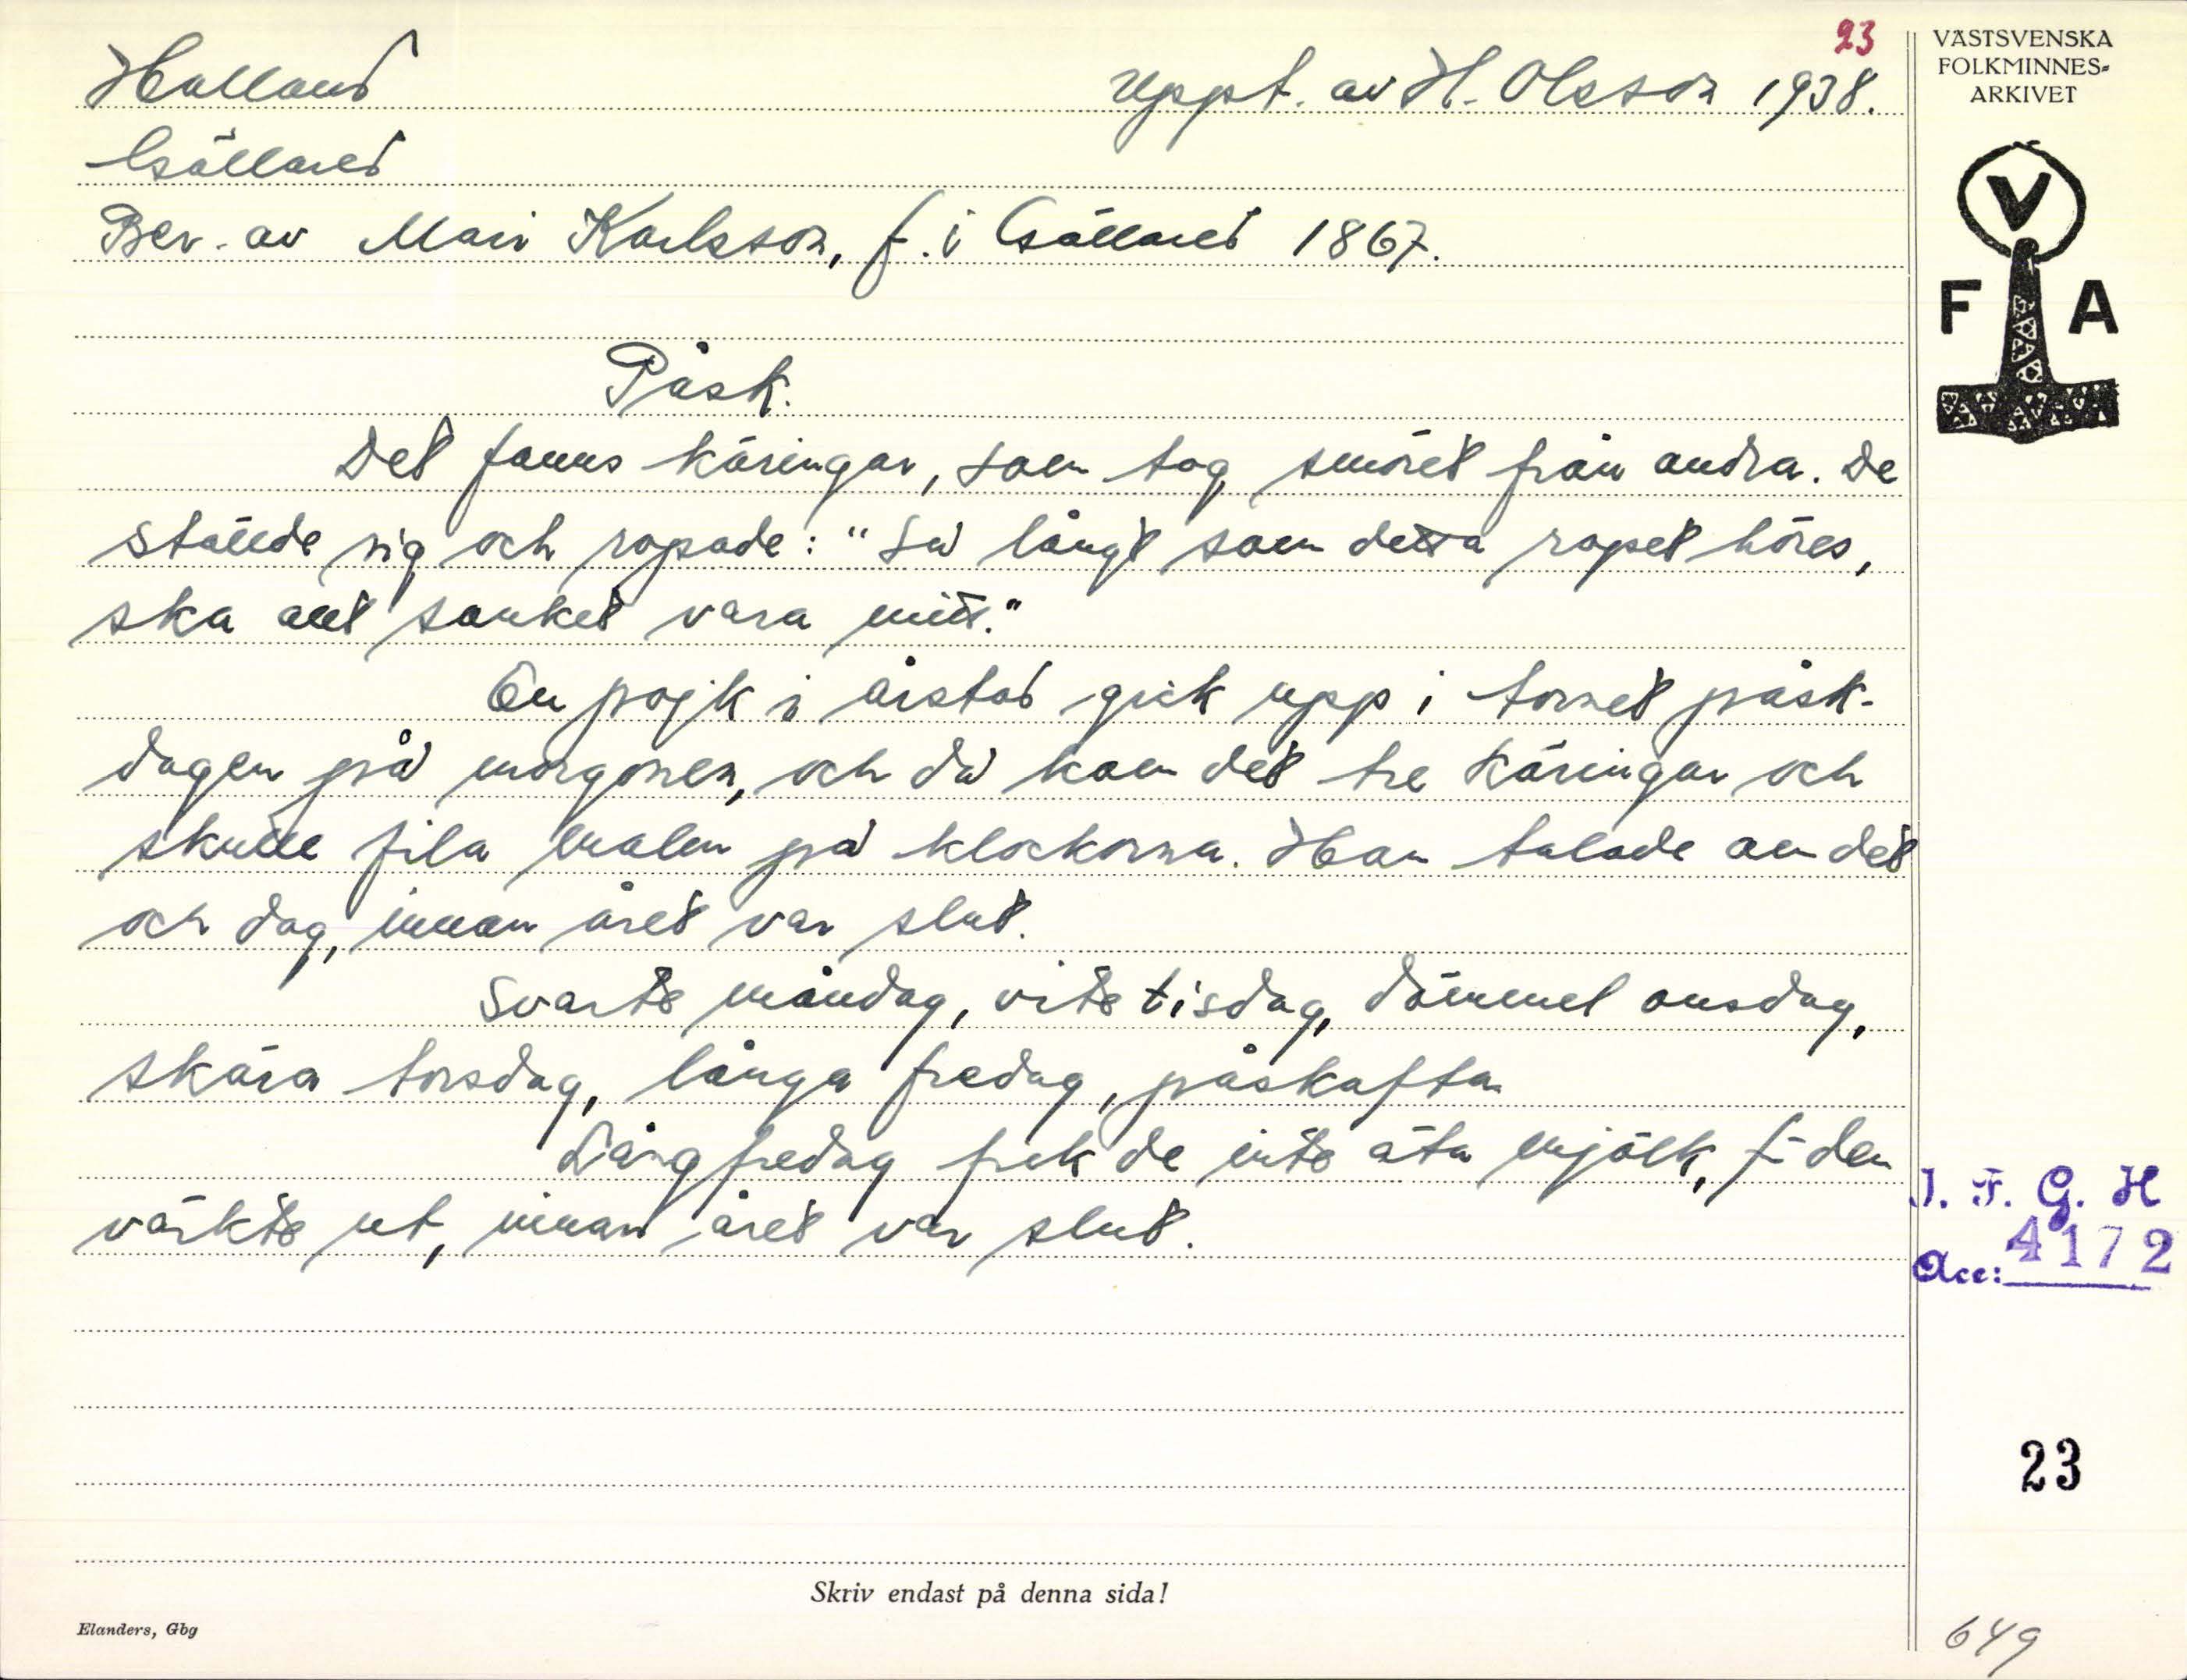 23
Halland
Uppt. av H. Olsson 1938.
Gällared
Ber. av Mari Karlsson, f. i Gällared 1867.
Påsk.
Det fanns käringar, som tog smöret från andra. De
ställde sig och ropade: "Så långt som detta ropet höres,
ska allt sanket vara mitt."
En pojk i Årstad gick upp i tornet påsk-
dagen på morgonen, och då kom det tre käringar och
skulle fila malm på klockorna. Han talade om det
och dog, innan året var slut.
Svarte måndag, vite tisdag, dämmel onsdag,
skära torsdag, långa fredag, påskaftan
Långfredag fick de inte äta mjölk, f- den
värkte ut, innan året var slut.
VÄSTSVENSKA
FOLKMINNES-
ARKIVET
V
F A
I. F. G. H
Acc: 4172
23
Skriv endast på denna sida!
Elanders, Gbg
649